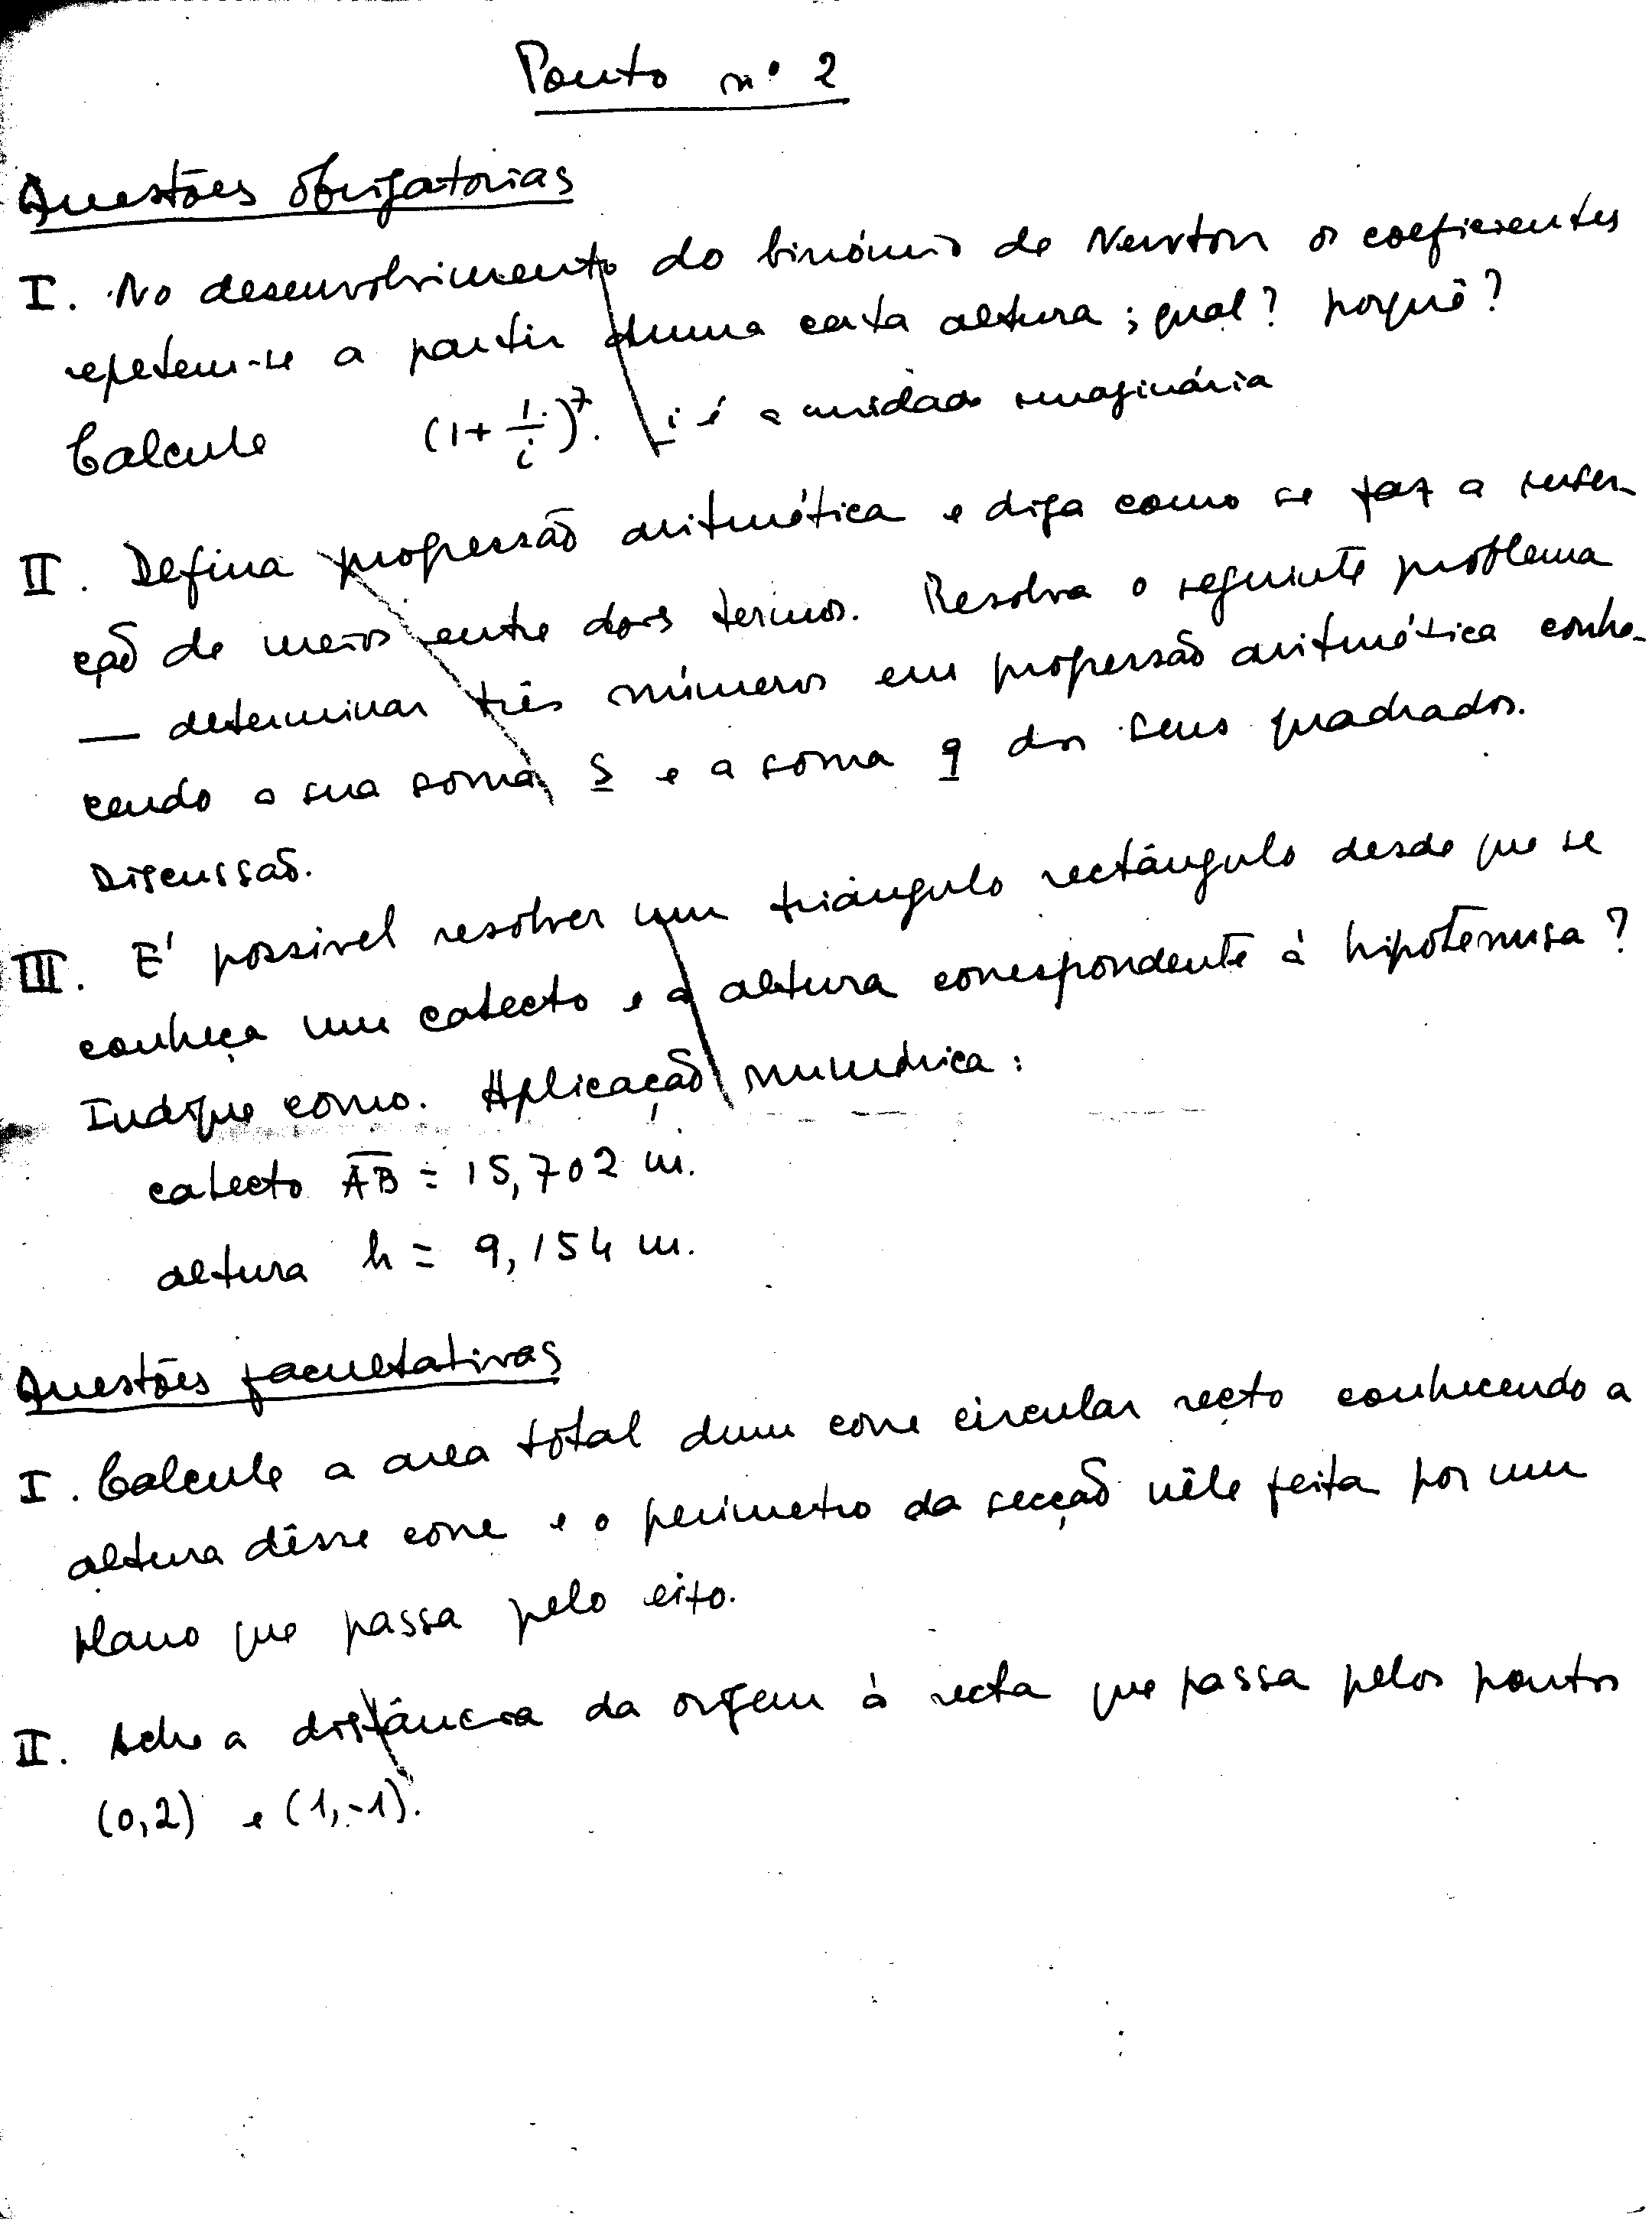 Ponto nº 2
Questões obrigatorias
I. No desenvolvimento do binómio de Newton os coeficientes
repetem-se a partir duma certa altura; qual? porquê?
Calcule (1+ 1/i)⁷. i é a unidade imaginária
II. Defina progressão aritmética e diga como se faz a inser-
ção de meios entre dois termos. Resolva o seguinte problema
— determinar três números em progressão aritmética conhe-
cendo a sua soma s e a soma q dos seus quadrados.
Discussão.
III. E' possivel resolver um triângulo rectângulo desde que se
conheça um catecto e a altura correspondente à hipotenusa?
Indique como. Aplicação numérica:
catecto AB = 15,702 m.
altura h = 9,154 m.
Questões facultativas
I. Calcule a area total dum cone circular recto conhecendo a
altura dêsse cone e o perimetro da secção nêle feita por um
plano que passa pelo eixo.
II. Ache a distância da origem à recta que passa pelos pontos
(0,2) e (1,-1).